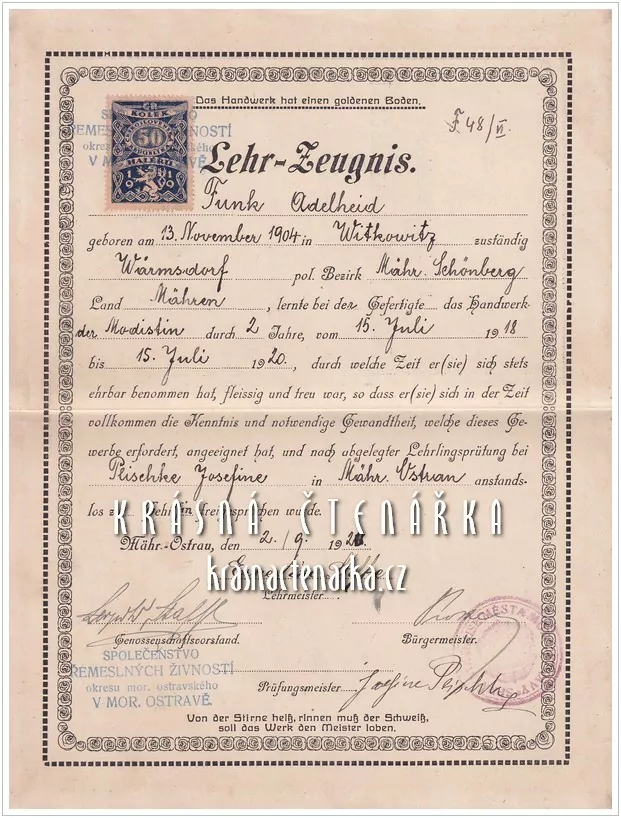 Das Handwerk hat einen goldenen Boden.
F. 48/VI.
SPOLEČENSTVO
ŘEMESLNÝCH ŽIVNOSTÍ
okresu mor. ostravského
V MOR. OSTRAVĚ
KOLEK
50
HALÉŘŮ
1919
Lehr-Zeugnis.
Funk Adelheid
geboren am 13. November 1904 in Witkowitz zuständig
Wärmsdorf pol. Bezirk Mähr. Schönberg
Land Mähren, lernte bei der Gefertigte das Handwerk
der Modistin durch 2 Jahre, vom 15. Juli 1918
bis 15. Juli 1920., durch welche Zeit er(sie) sich stets
ehrbar benommen hat, fleissig und treu war, so dass er(sie) sich in der Zeit
vollkommen die Kenntnis und notwendige Gewandtheit, welche dieses Ge-
werbe erfordert, angeeignet hat, und nach abgelegter Lehrlingsprüfung bei
Pleischke Josefine in Mähr. Ostrau anstands-
los zur Lehr in freigesprochen wurde.
KRÁSNÁ ČTENÁŘKA
Mähr.-Ostrau, den 2./9. 192
krasnactenarka.cz
Lehrmeister.
Genossenschaftsvorstand.
Bürgermeister.
SPOLEČENSTVO
ŘEMESLNÝCH ŽIVNOSTÍ
okresu mor. ostravského
V MOR. OSTRAVĚ.
MĚSTA
Prüfungsmeister Josefine Pleischke
Von der Stirne heiß, rinnen muß der Schweiß,
soll das Werk den Meister loben.